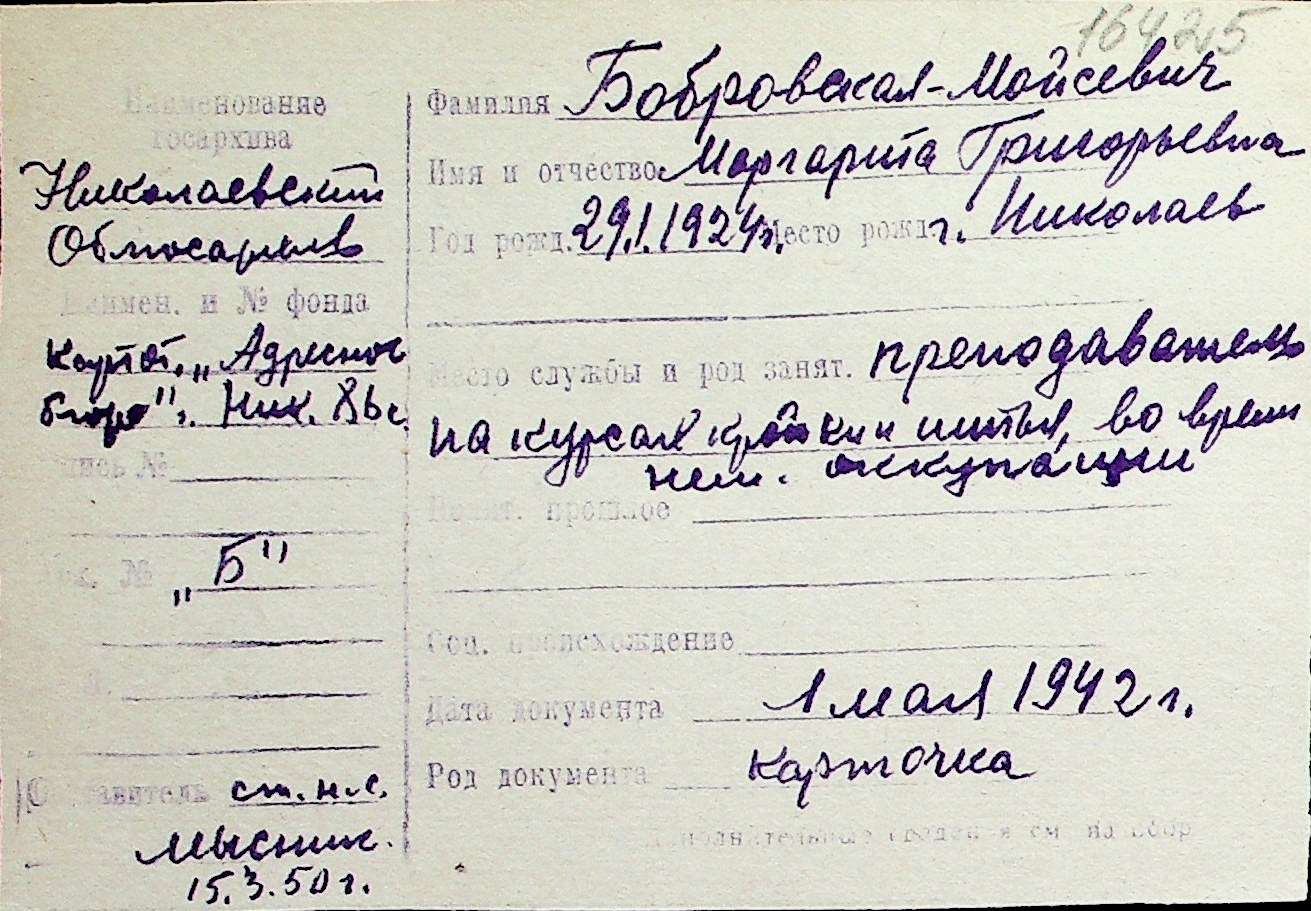 16425
Наименование
госархива
Николаевский
Облгосархив
Наимен. и № фонда
Картот. „Адресное
бюро" г. Ник.
Опись №
„Б"
Составитель ст. н. с.
Мысник.
15.3.50 г.
Фамилия Бобровская-Мойсевич
Имя и отчество Маргарита Григорьевна
Год рожд. 29.1.1924 г. Место рожд. г. Николаев
Место службы и род занят. преподаватель
на курсах кройки и шитья, во время
нем. оккупации
Полит. прошлое
Соц. происхождение
Дата документа 1 мая 1942 г.
Род документа карточка
Дополнительные сведения см. на обор